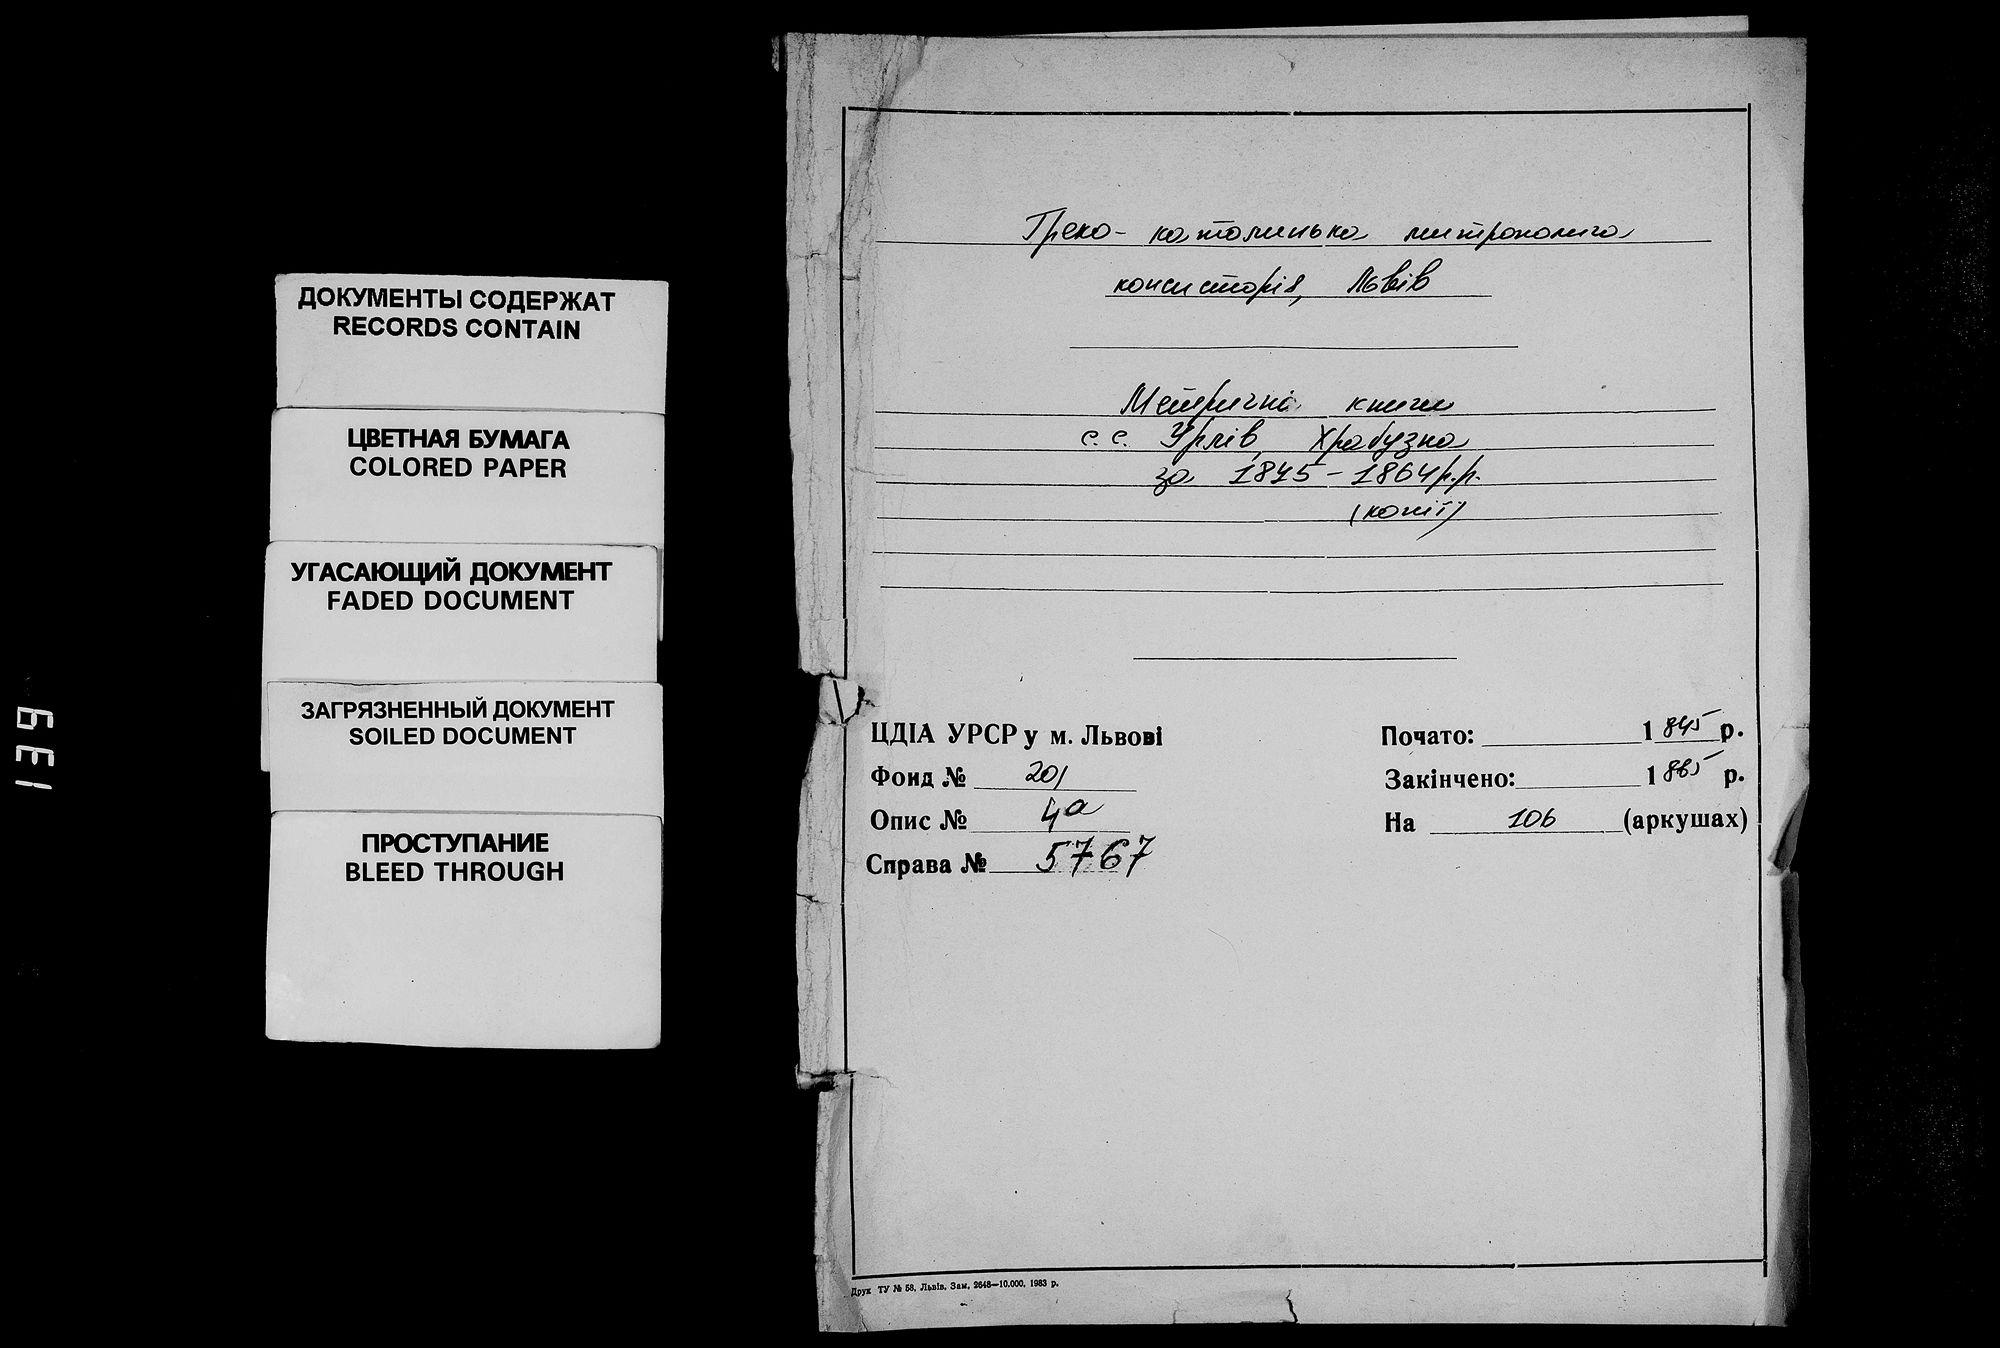 139
ДОКУМЕНТЫ СОДЕРЖАТ
RECORDS CONTAIN
ЦВЕТНАЯ БУМАГА
COLORED PAPER
УГАСАЮЩИЙ ДОКУМЕНТ
FADED DOCUMENT
ЗАГРЯЗНЕННЫЙ ДОКУМЕНТ
SOILED DOCUMENT
ПРОСТУПАНИЕ
BLEED THROUGH
Греко-католицька митрополича
консисторія, Львів
Метричні книги
с.с. Урлів, Храбузна
за 1845-1864 р.р.
(копії)
ЦДІА УРСР у м. Львові
Фонд № 201
Опис № 4а
Справа № 5767
Почато: 1845 р.
Закінчено: 1865 р.
На 106 (аркушах)
Друк ТУ № 58. Львів. Зам. 2648—10.000. 1983 р.